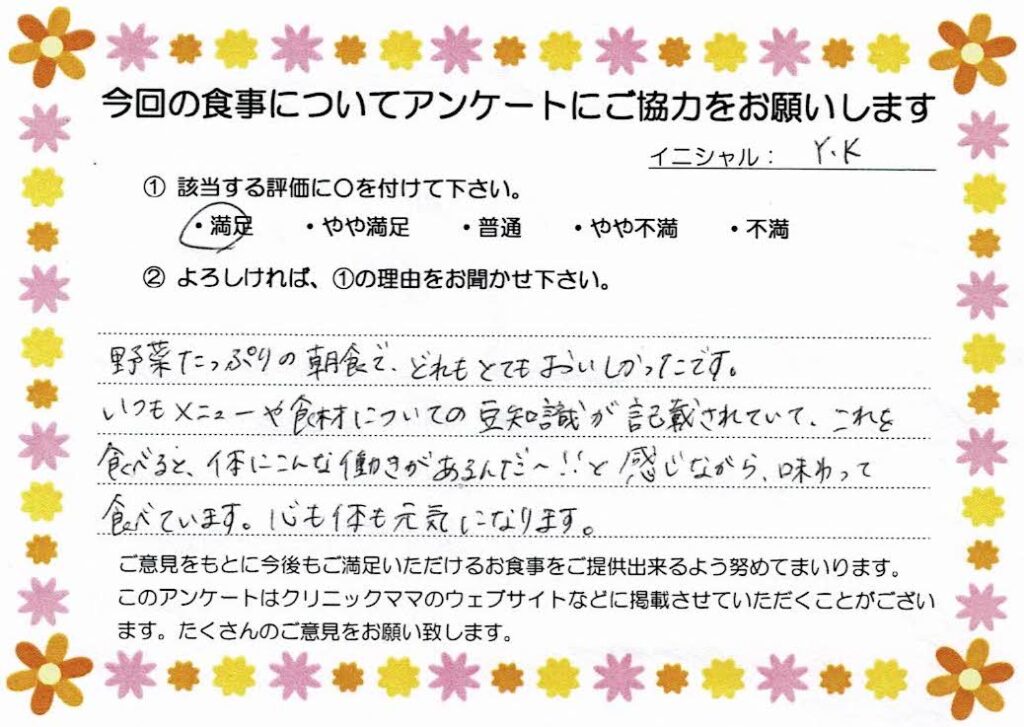 今回の食事についてアンケートにご協力をお願いします
イニシャル： Y.K
① 該当する評価に○を付けて下さい。
・満足 ・やや満足 ・普通 ・やや不満 ・不満
② よろしければ、①の理由をお聞かせ下さい。
野菜たっぷりの朝食で、どれもとてもおいしかったです。
いつもメニューや食材についての豆知識が記載されていて、これを
食べると、体にこんな働きがあるんだ〜!!と感じながら、味わって
食べています。心も体も元気になります。
ご意見をもとに今後もご満足いただけるお食事をご提供出来るよう努めてまいります。
このアンケートはクリニックママのウェブサイトなどに掲載させていただくことがござい
ます。たくさんのご意見をお願い致します。